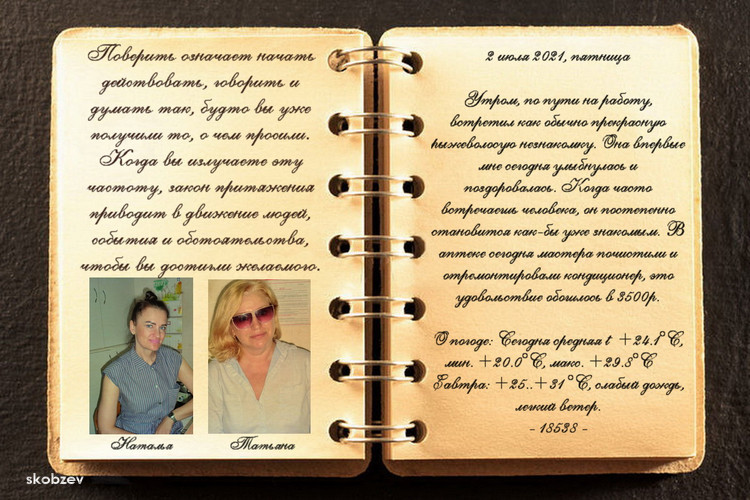 Поверить означает начать
действовать, говорить и
думать так, будто вы уже
получили то, о чем просили.
Когда вы излучаете эту
частоту, закон притяжения
приводит в движение людей,
события и обстоятельства,
чтобы вы достигли желаемого.
Наталья
Татьяна
2 июля 2021, пятница
Утром, по пути на работу,
встретил как обычно прекрасную
рыжеволосую незнакомку. Она впервые
мне сегодня улыбнулась и
поздоровалась. Когда часто
встречаешь человека, он постепенно
становится как-бы уже знакомым. В
аптеке сегодня мастера почистили и
отремонтировали кондиционер, это
удовольствие обошлось в 3500р.
О погоде: Сегодня средняя t +24.1°C,
мин. +20.0°C, макс. +29.8°C
Завтра: +25..+31°C, слабый дождь,
легкий ветер.
- 18538 -
skobzev